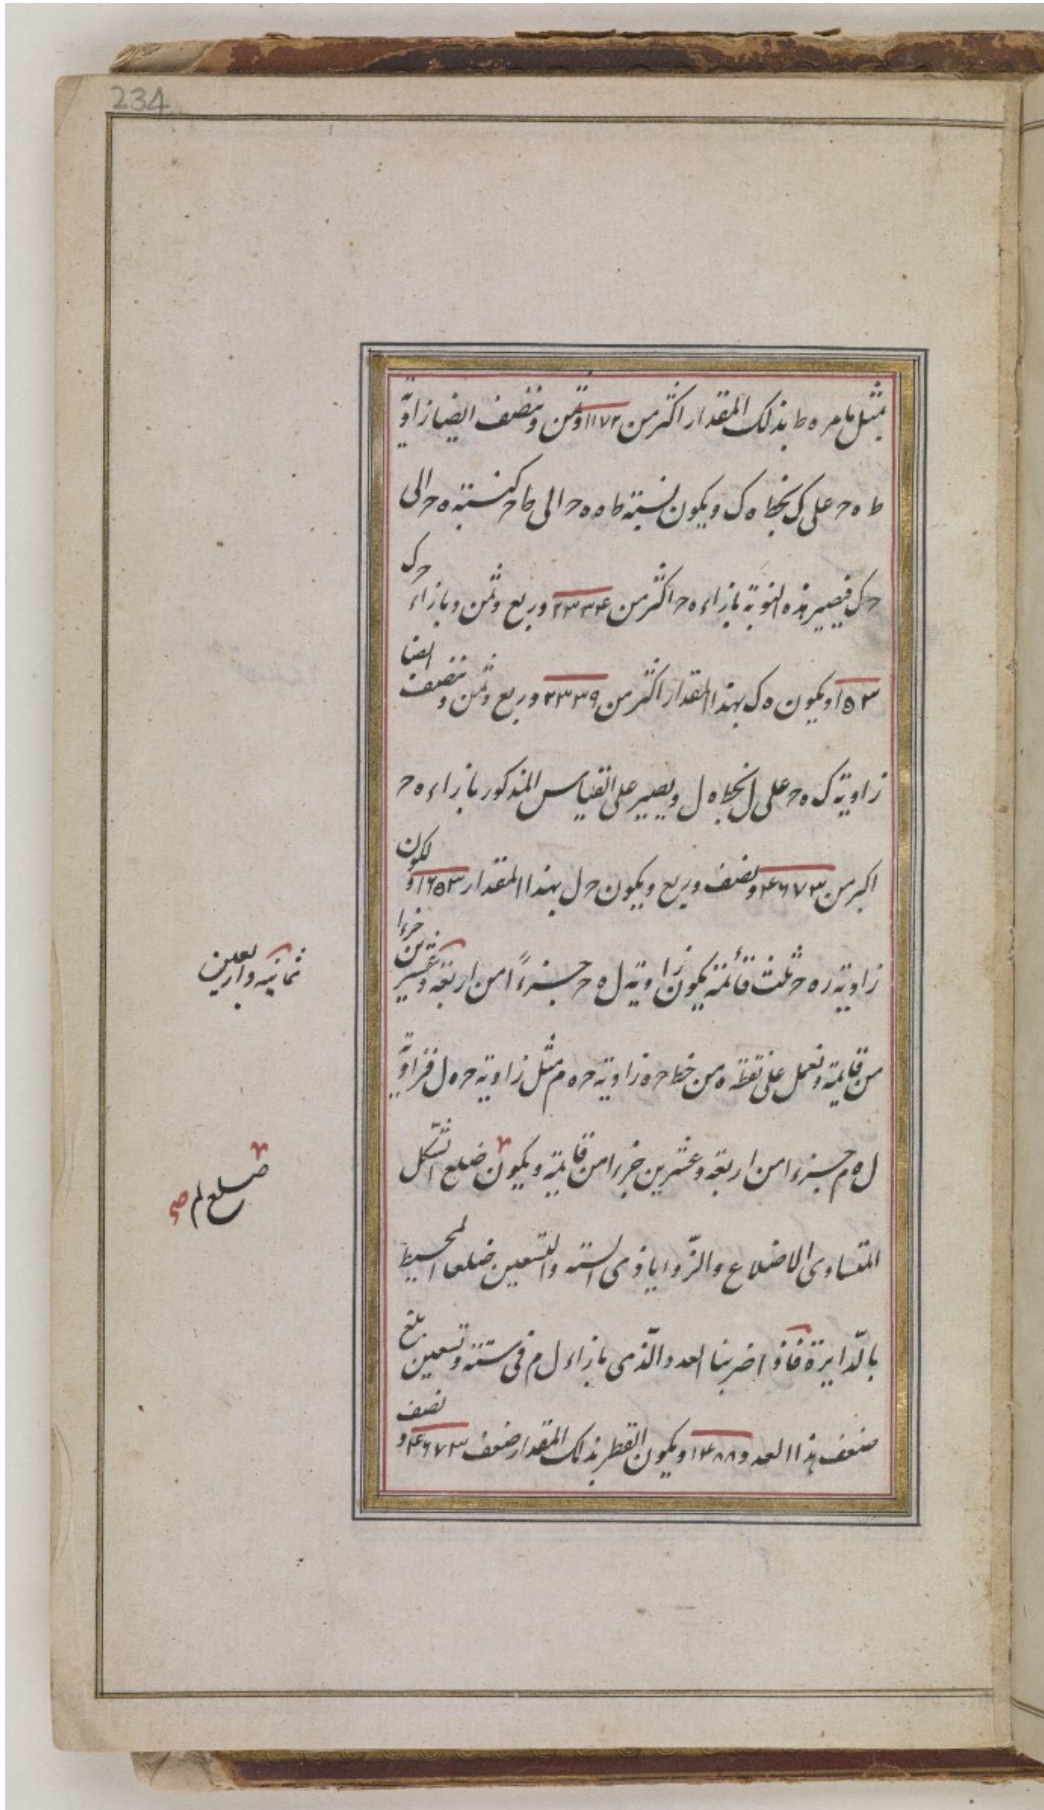 234
بمثل ما مر ه ط بذلك المقدار اكثر من ١١٧٢ وثمن وننصف ايضا زاوية
ط ه ح على ك بخط ه ك ويكون نسبة ط ه ه ح الى ط ح كنسبة ه ح الى
ح ك فيصير هذه النوبة بازاء ه ح اكثر من ٢٣٣٤ وربع وثمن وبازاء ح ك
١٥٣ ويكون ه ك بهذا المقدار اكثر من ٢٣٣٩ وربع وثمن وننصف ايضا
زاوية ك ه ح على ل بخط ه ل ويصير على القياس المذكور بازاء ه ح
اكبر من ٤٦٧٣ ونصف وربع ويكون ح ل بهذا المقدار ١٦٥٣ ولكون
زاوية ره ح ثلث قائمة يكون زاوية ل ه ح جزءًا من اربعة وعشرين جزءا
ثمانيه واربعين
من قايمة ونعمل على نقطة ه من خط ح ه زاوية ح ه م مثل زاوية ح ه ل فزاوية
ل ه م جزءا من اربعة وعشرين جزءا من قايمة ويكون ضلع الشكل
ضلع لم صح
المتساوى الاضلاع والزّوايا ذى الستة والتسعين ضلعا المحيط
بالّدايرة فاذا ضربنا العدد الّذى بازاء ل م فى ستة وتسعين بلغ
ضعف هذا العدد ١٤٨٨ ويكون القطر بذلك المقدار ضعف ٤٦٧٣ ونصف